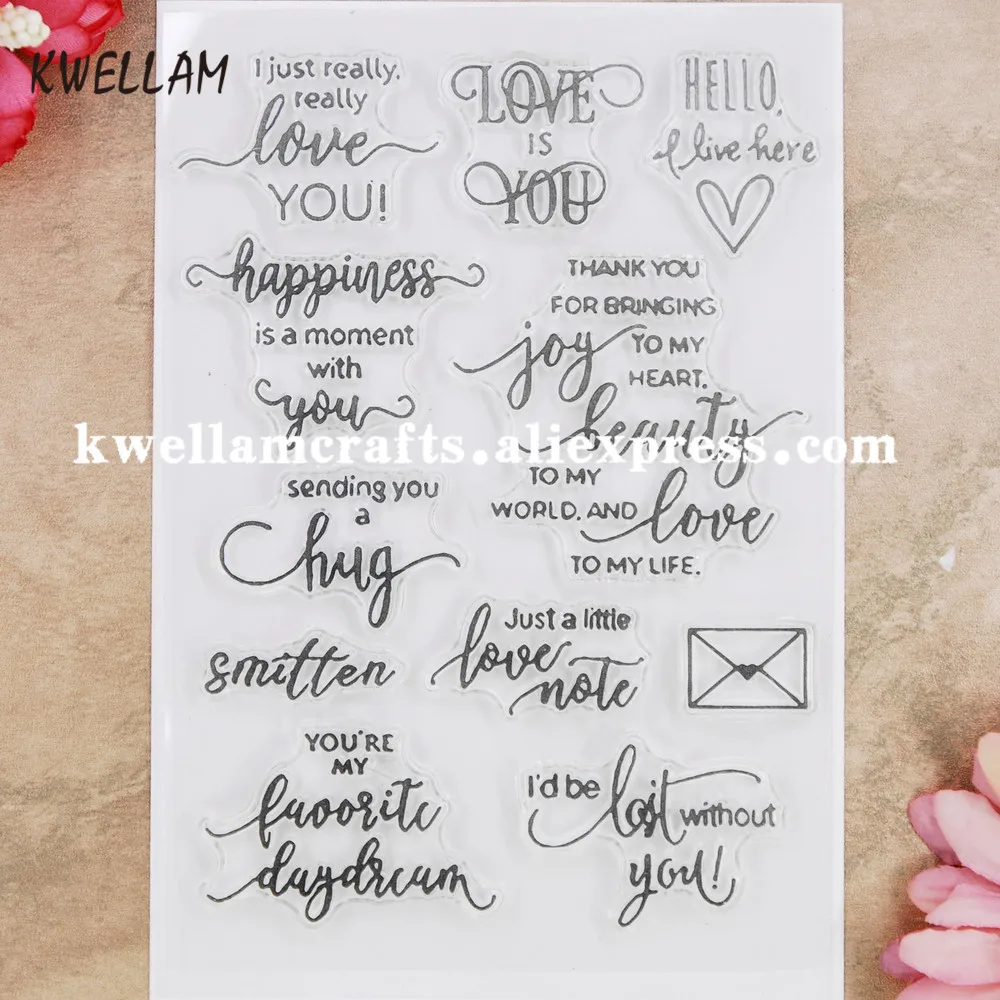 KWELLAM
I just really,
really
love
YOU!
LOVE
IS
YOU
HELLO,
I live here
happiness
is a moment
with
you
THANK YOU
FOR BRINGING
joy TO MY
HEART,
beauty
TO MY
WORLD, AND love
TO MY LIFE.
kwellamcrafts.aliexpress.com
sending you
a
hug
smitten
Just a little
love
note
YOU'RE
MY
favorite
daydream
I'd be lost without
you!